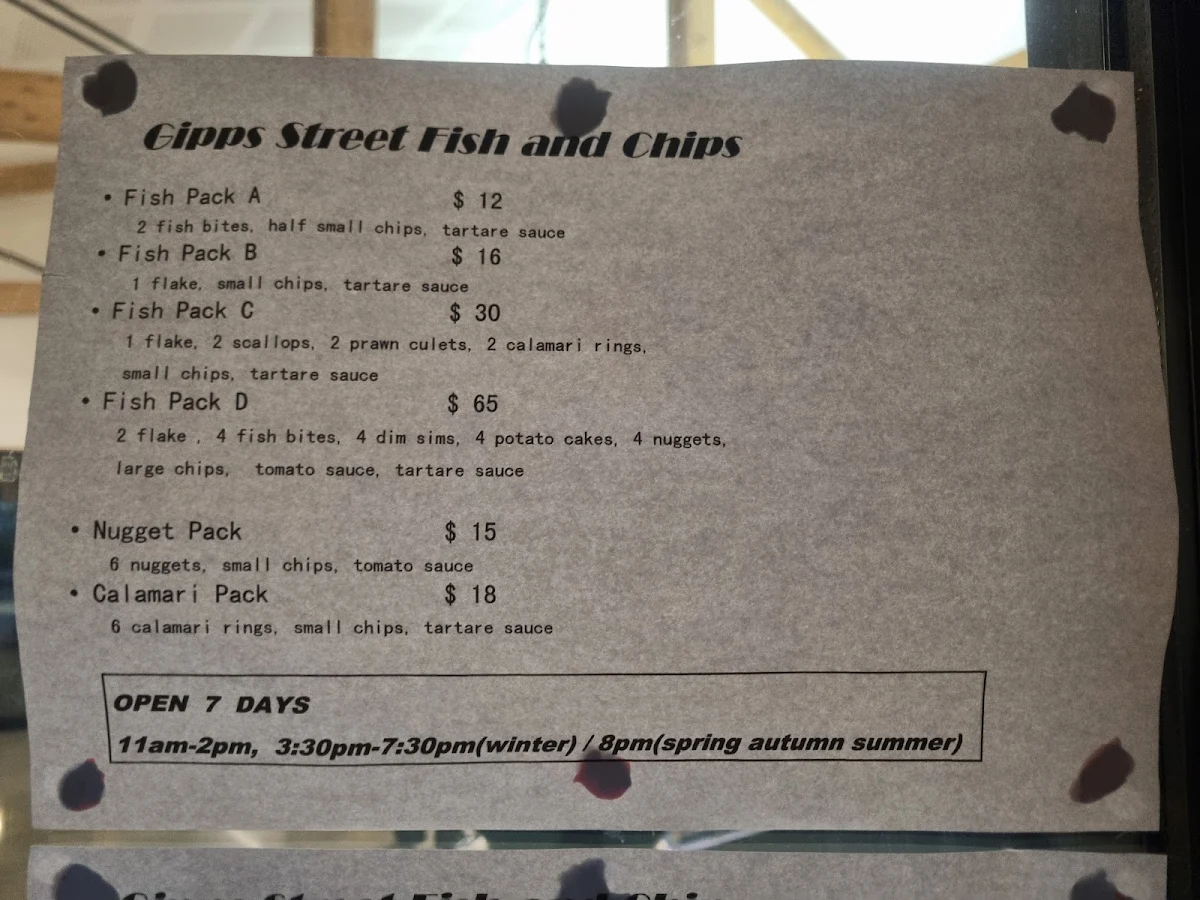 Gipps Street Fish and Chips
• Fish Pack A $ 12
2 fish bites, half small chips, tartare sauce
• Fish Pack B $ 16
1 flake, small chips, tartare sauce
• Fish Pack C $ 30
1 flake, 2 scallops, 2 prawn culets, 2 calamari rings,
small chips, tartare sauce
• Fish Pack D $ 65
2 flake , 4 fish bites, 4 dim sims, 4 potato cakes, 4 nuggets,
large chips, tomato sauce, tartare sauce
• Nugget Pack $ 15
6 nuggets, small chips, tomato sauce
• Calamari Pack $ 18
6 calamari rings, small chips, tartare sauce
OPEN 7 DAYS
11am-2pm, 3:30pm-7:30pm(winter) / 8pm(spring autumn summer)
Gipps Street Fish and Chips